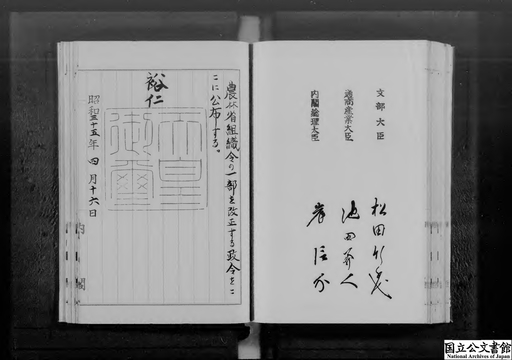 農林省組織令の一部を改正する政令をこ
こに公布する。
裕仁
天皇
御璽
昭和三十五年 四月十六日
内閣
文部大臣 松田竹千代
通商産業大臣 池田勇人
内閣総理大臣 岸信介
国立公文書館
National Archives of Japan